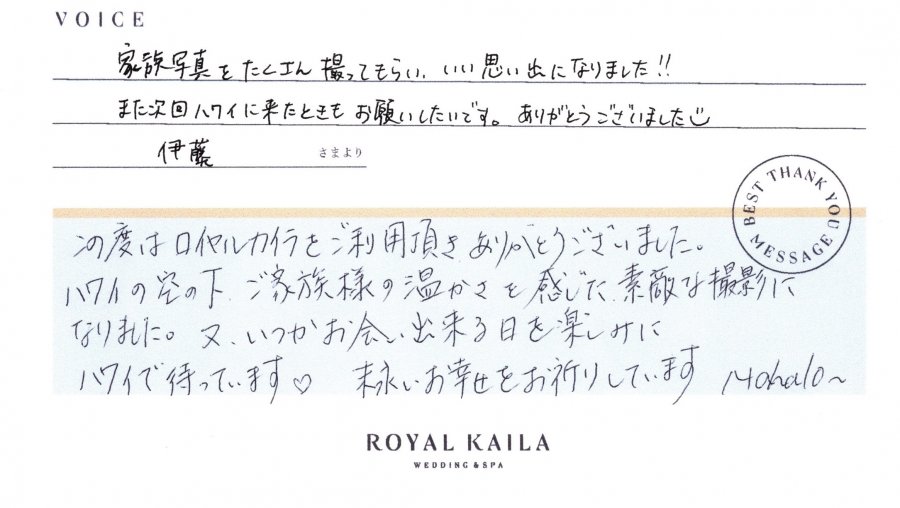 VOICE
家族写真をたくさん撮ってもらい、いい思い出になりました!!
また次回ハワイに来たときもお願いしたいです。ありがとうございました
伊藤 さまより
BEST THANK YOU MESSAGE
この度はロイヤルカイラをご利用頂きありがとうございました。
ハワイの空の下、ご家族様の温かさを感じた素敵な撮影に
なりました。又、いつかお会い出来る日を楽しみに
ハワイで待っています♡ 末永いお幸せをお祈りしています Mahalo~
ROYAL KAILA
WEDDING & SPA